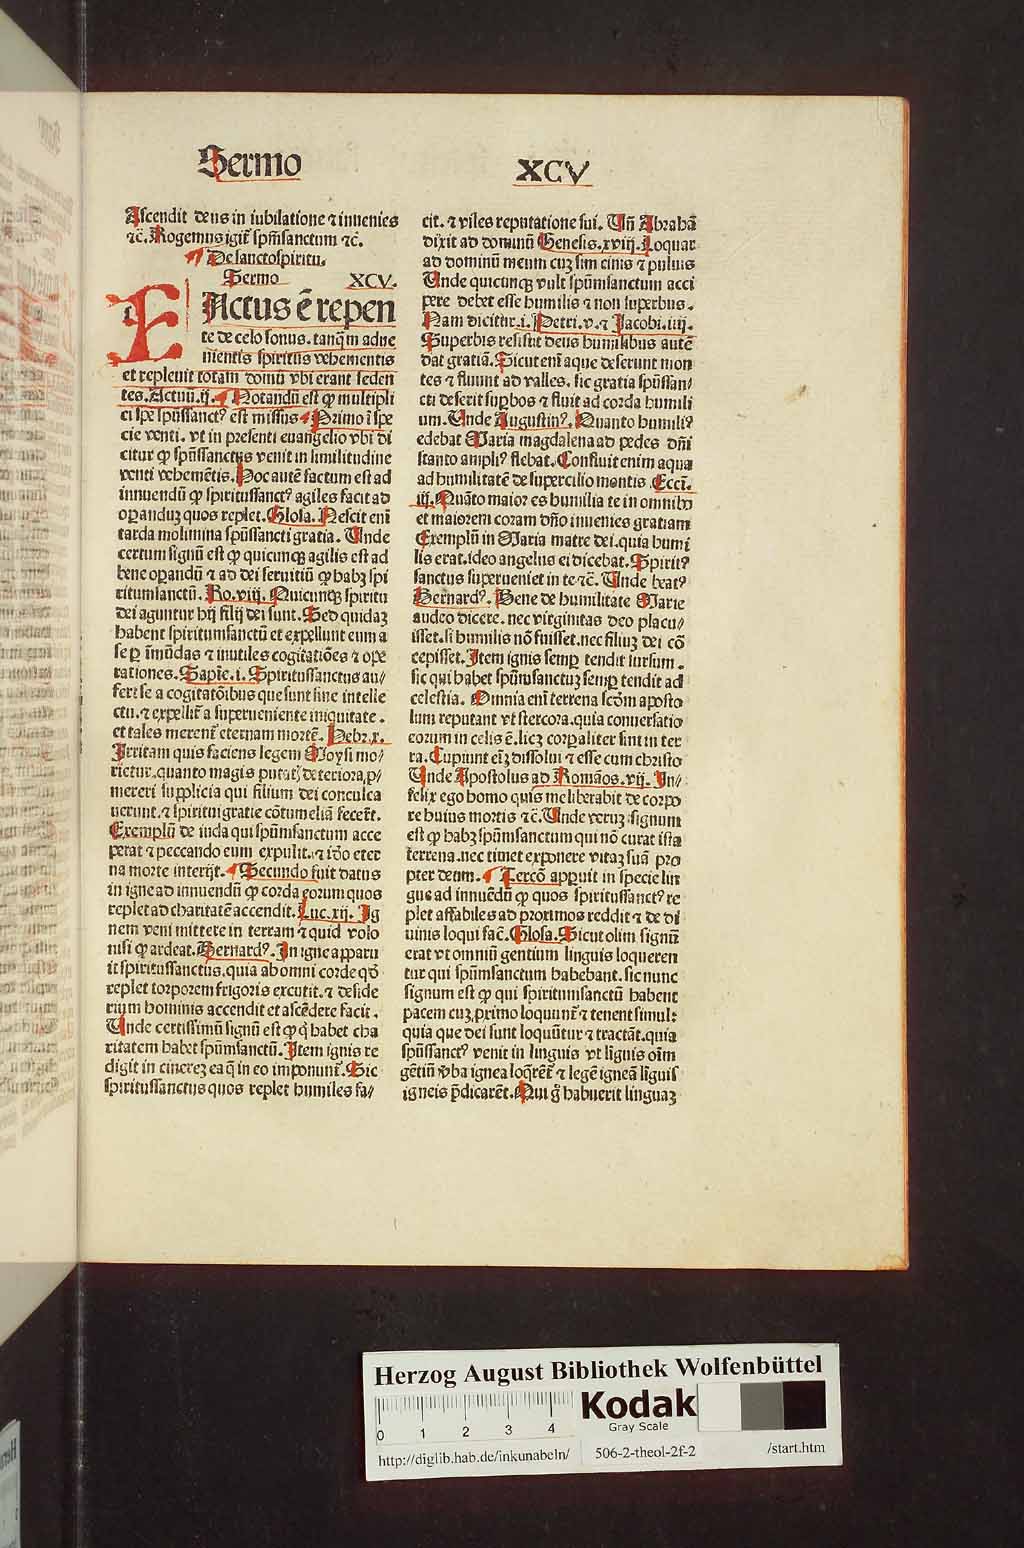 Sermo XCV
Ascendit deus in iubilatione ⁊ inuenies
⁊c̄. Rogemus igit̄ spm̄sanctum ⁊c̄.
¶ De sanctospiritu.
Sermo XCV.
FActus ē repen
te de celo sonus. tanq̄ꝫ adue
nientis spiritus vehementis
et repleuit totam domū vbi erant seden
tes. Actuū.ij. ¶ Notandū est ꝙ multipli
ci spe spūssanctꝰ est missus ¶ Primo ī spe
cie venti. vt in presenti euangelio vbi di
citur ꝙ spūssanctus venit in similitudine
venti vehemētis. Hoc autē factum est ad
innuendū ꝙ spiritussanctꝰ agiles facit ad
oꝑanduꝫ quos replet. Glosa. Nescit eni
tarda molimina spūssancti gratia. Unde
certum signū est ꝙ quicunqꝫ agilis est ad
bene oꝑandū ⁊ ad dei seruitiū ꝙ habꝫ spi
ritumsanctū. Ro.viij. Quicunqꝫ spiritu
dei aguntur hij filij dei sunt. Sed quidaꝫ
habent spiritumsanctū et expellunt eum a
se ꝑ īmūdas ⁊ inutiles cogitatiōes ⁊ ope
rationes. Sapīe.i. Spiritussanctus au⸗
fert se a cogitatōibus que sunt sine intelle
ctu. ⁊ expellit̄ a superueniente iniquitate.
et tales merent̄ eternam mortē. Hebr.x.
Irritam quis faciens legem Moysi mo⸗
rietur. quanto magis putat̄ deteriora ꝓ⸗
mereri supplicia qui filium dei conculca
uerunt. ⁊ spirituigratie cōtumeliā fecer̄t.
Exemplū de iuda qui spūmsanctum acce
perat ⁊ peccando eum expulit. ⁊ idō eter
na morte interijt. ¶ Secundo fuit datus
in igne ad innuendū ꝙ corda eorum quos
replet ad charitatē accendit. Luc.xij. Ig
nem veni mittere in terram ⁊ quid volo
nisi ꝙ ardeat. Bernardꝰ. In igne apparu
it spiritussanctus. quia ab omni corde qđ
replet torporem frigoris excutit. ⁊ deside
rium hominis accendit et ascēdere facit.
Unde certissimū signū est ꝙ q̇ habet cha
ritatem habet spūmsanctū. Item ignis re
digit in cinereꝫ ea q̄ in eo imponunt̄. Sic
spiritussanctus quos replet humiles fa⸗
cit. ⁊ viles reputatione sui. Uñ Abrahā
dixit ad dominū Genesis.xviij. Loquar
ad dominū meum cuꝫ sim cinis ⁊ puluis
Unde quicunqꝫ vult spūmsanctum acci
pere debet esse humilis ⁊ non superbus.
Nam dicitur.i. Petri.v. ⁊ Jacobi.iiij.
Superbis resistit deus humilibus autē
dat gratiā. Sicut eni aque deserunt mon
tes ⁊ fluunt ad valles. sic gratia spūssan⸗
cti deserit suꝑbos ⁊ fluit ad corda humili
um. Unde Augustinꝰ. Quanto humiliꝰ
sedebat Maria magdalena ad pedes dñi
tanto ampliꝰ flebat. Confluit enim aqua
ad humilitatē de supercilio montis. Ecci.
iij. Quāto maior es humilia te in omnibꝰ
et maiorem coram dño inuenies gratiam
Exemplū in Maria matre dei. quia humi
lis erat. ideo angelus ei dicebat. Spiritꝰ
sanctus superueniet in te ⁊c̄. Unde beatꝰ
Bernardꝰ. Bene de humilitate Marie
audeo dicere. nec virginitas deo placu⸗
isset. si humilis nō fuisset. nec filiuꝫ dei cō
cepisset. Item ignis semꝑ tendit sursum.
sic qui habet spūmsanctuꝫ semꝑ tendit ad
celestia. Omnia eni terrena scḋm aposto
lum reputant vt stercora. quia conuersatio
eorum in celis ē. licꝫ corꝑaliter sint in ter
ra. Cupiunt eīꝫ dissolui ⁊ esse cum christo
Unde Apostolus ad Romāos.vij. In⸗
felix ego homo quis me liberabit de corpo
re huius mortis ⁊c̄. Unde veruꝫ signum
est ꝙ habꝫ spūmsanctum qui nō curat ista
terrena. nec timet exponere vitaꝫ suā pro
pter deum. ¶ Tercō apꝑuit in specie lin
gue ad innuēdū ꝙ quos spiritussanctꝰ re
plet affabiles ad proximos reddit ⁊ de di
uinis loqui fac̄. Glosa. Sicut olim signū
erat vt omniū gentium linguis loqueren
tur qui spūmsanctum habebant. sic nunc
signum est ꝙ qui spiritumsanctū habent
pacem cuꝫ primo loquunt̄ ⁊ tenent simul:
quia que dei sunt loquūtur ⁊ tractāt. quia
spūssanctꝰ venit in linguis vt līguis oīm
gētiū v̄ba ignea loq̄rēt̄ ⁊ legē igneā līguis
igneis p̄dicarēt. Qui g̊ habuerit linguaꝫ
Herzog August Bibliothek Wolfenbüttel
0 1 2 3 4
Kodak
Gray Scale
http://diglib.hab.de/inkunabeln/ 506-2-theol-2f-2 /start.htm